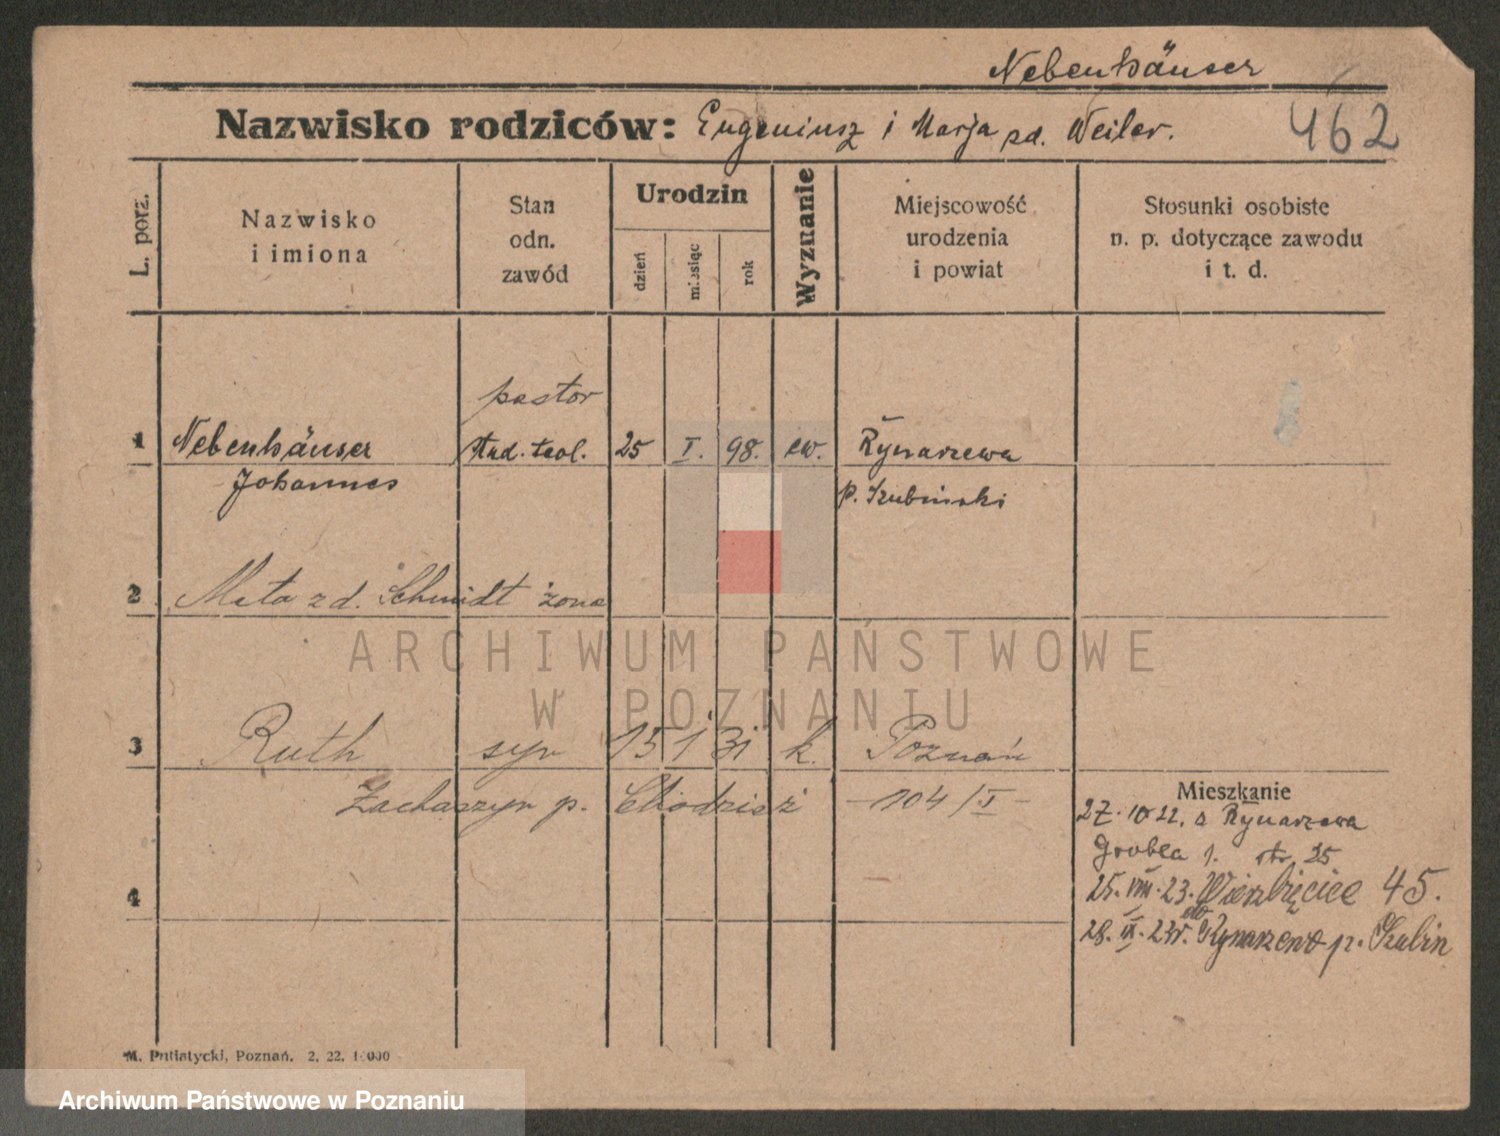 Nebenhäuser
Nazwisko rodziców: Eugeniusz i Marja zd. Weiler.
462
L. porz.
Nazwisko
i imiona
Stan
odn.
zawód
Urodzin
dzień
miesiąc
rok
Wyznanie
Miejscowość
urodzenia
i powiat
Stosunki osobiste
n. p. dotyczące zawodu
i t. d.
pastor
1 Nebenhäuser stud. teol. 25 I. 98. ew. Rynarzewa
Johannes p. Szubiński
2 Meta z d. Schmidt żona
ARCHIWUM PAŃSTWOWE
W POZNANIU
3 Ruth syn 15 1 31 k. Poznań
Zacharzyn p. Chodzież -104/I-
Mieszkanie
27.10 22. z Rynarzewa
Grobla 1. 25
25. VIII. 23. Wierzbięcice 45.
4
28. IX. 23r. do Rynarzewo p. Szubin
M. Putiatycki, Poznań. 2, 22, 10000
Archiwum Państwowe w Poznaniu